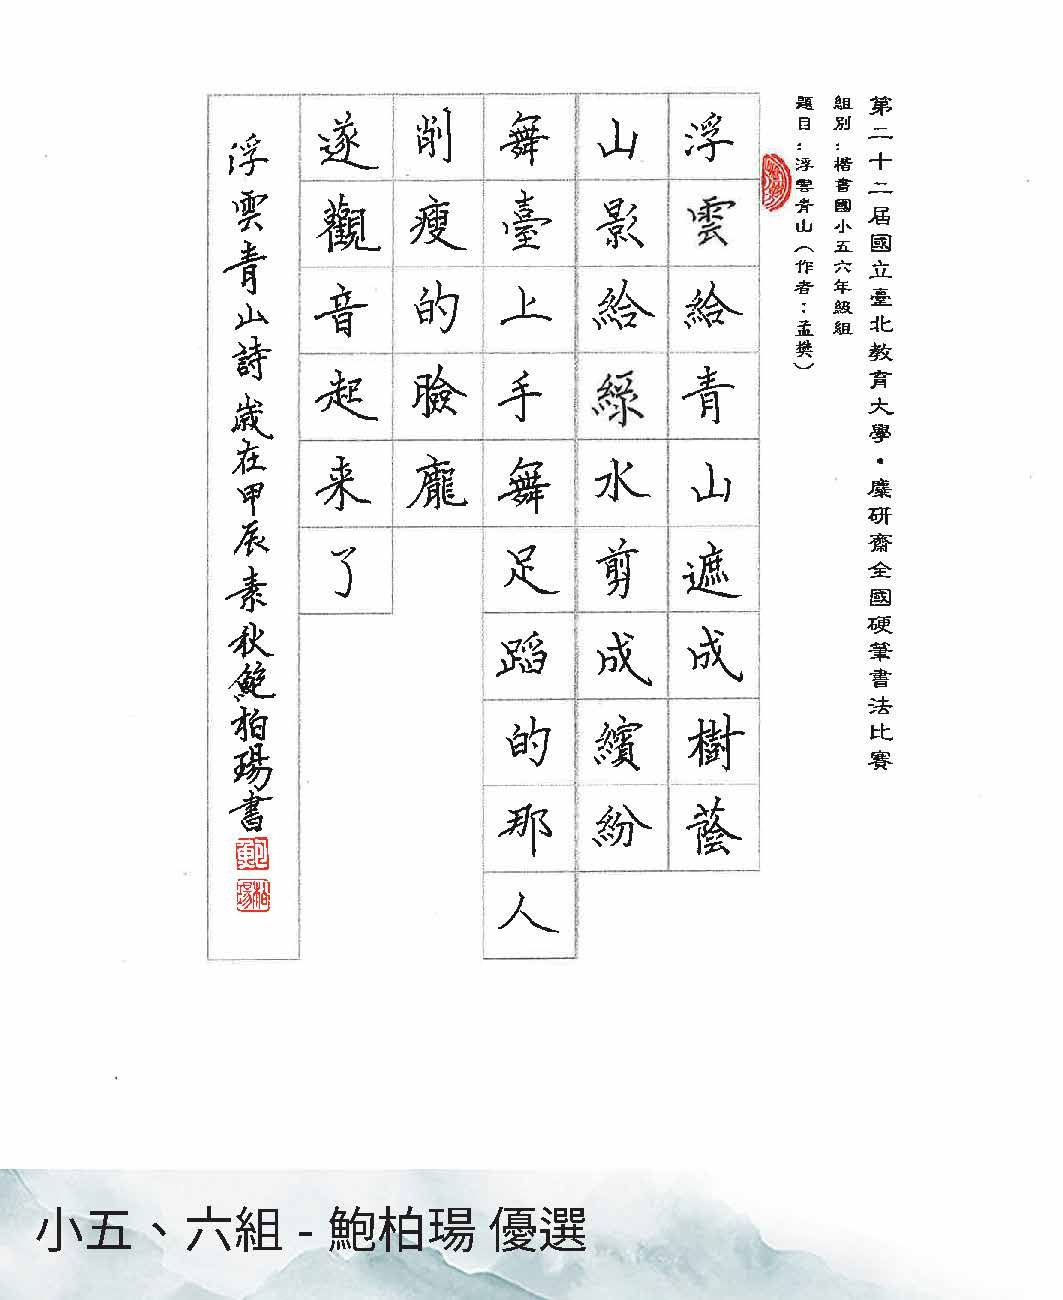 第二十二屆國立臺北教育大學・麋研齋全國硬筆書法比賽
組別：楷書國小五六年級組
題目：浮雲青山（作者：孟樊）
浮雲給青山遮成樹蔭
山影給綠水剪成繽紛
舞臺上手舞足蹈的那人
削瘦的臉龐
遂觀音起来了
浮雲青山詩歲在甲辰素秋鮑柏瑒書
小五、六組 - 鮑柏瑒 優選